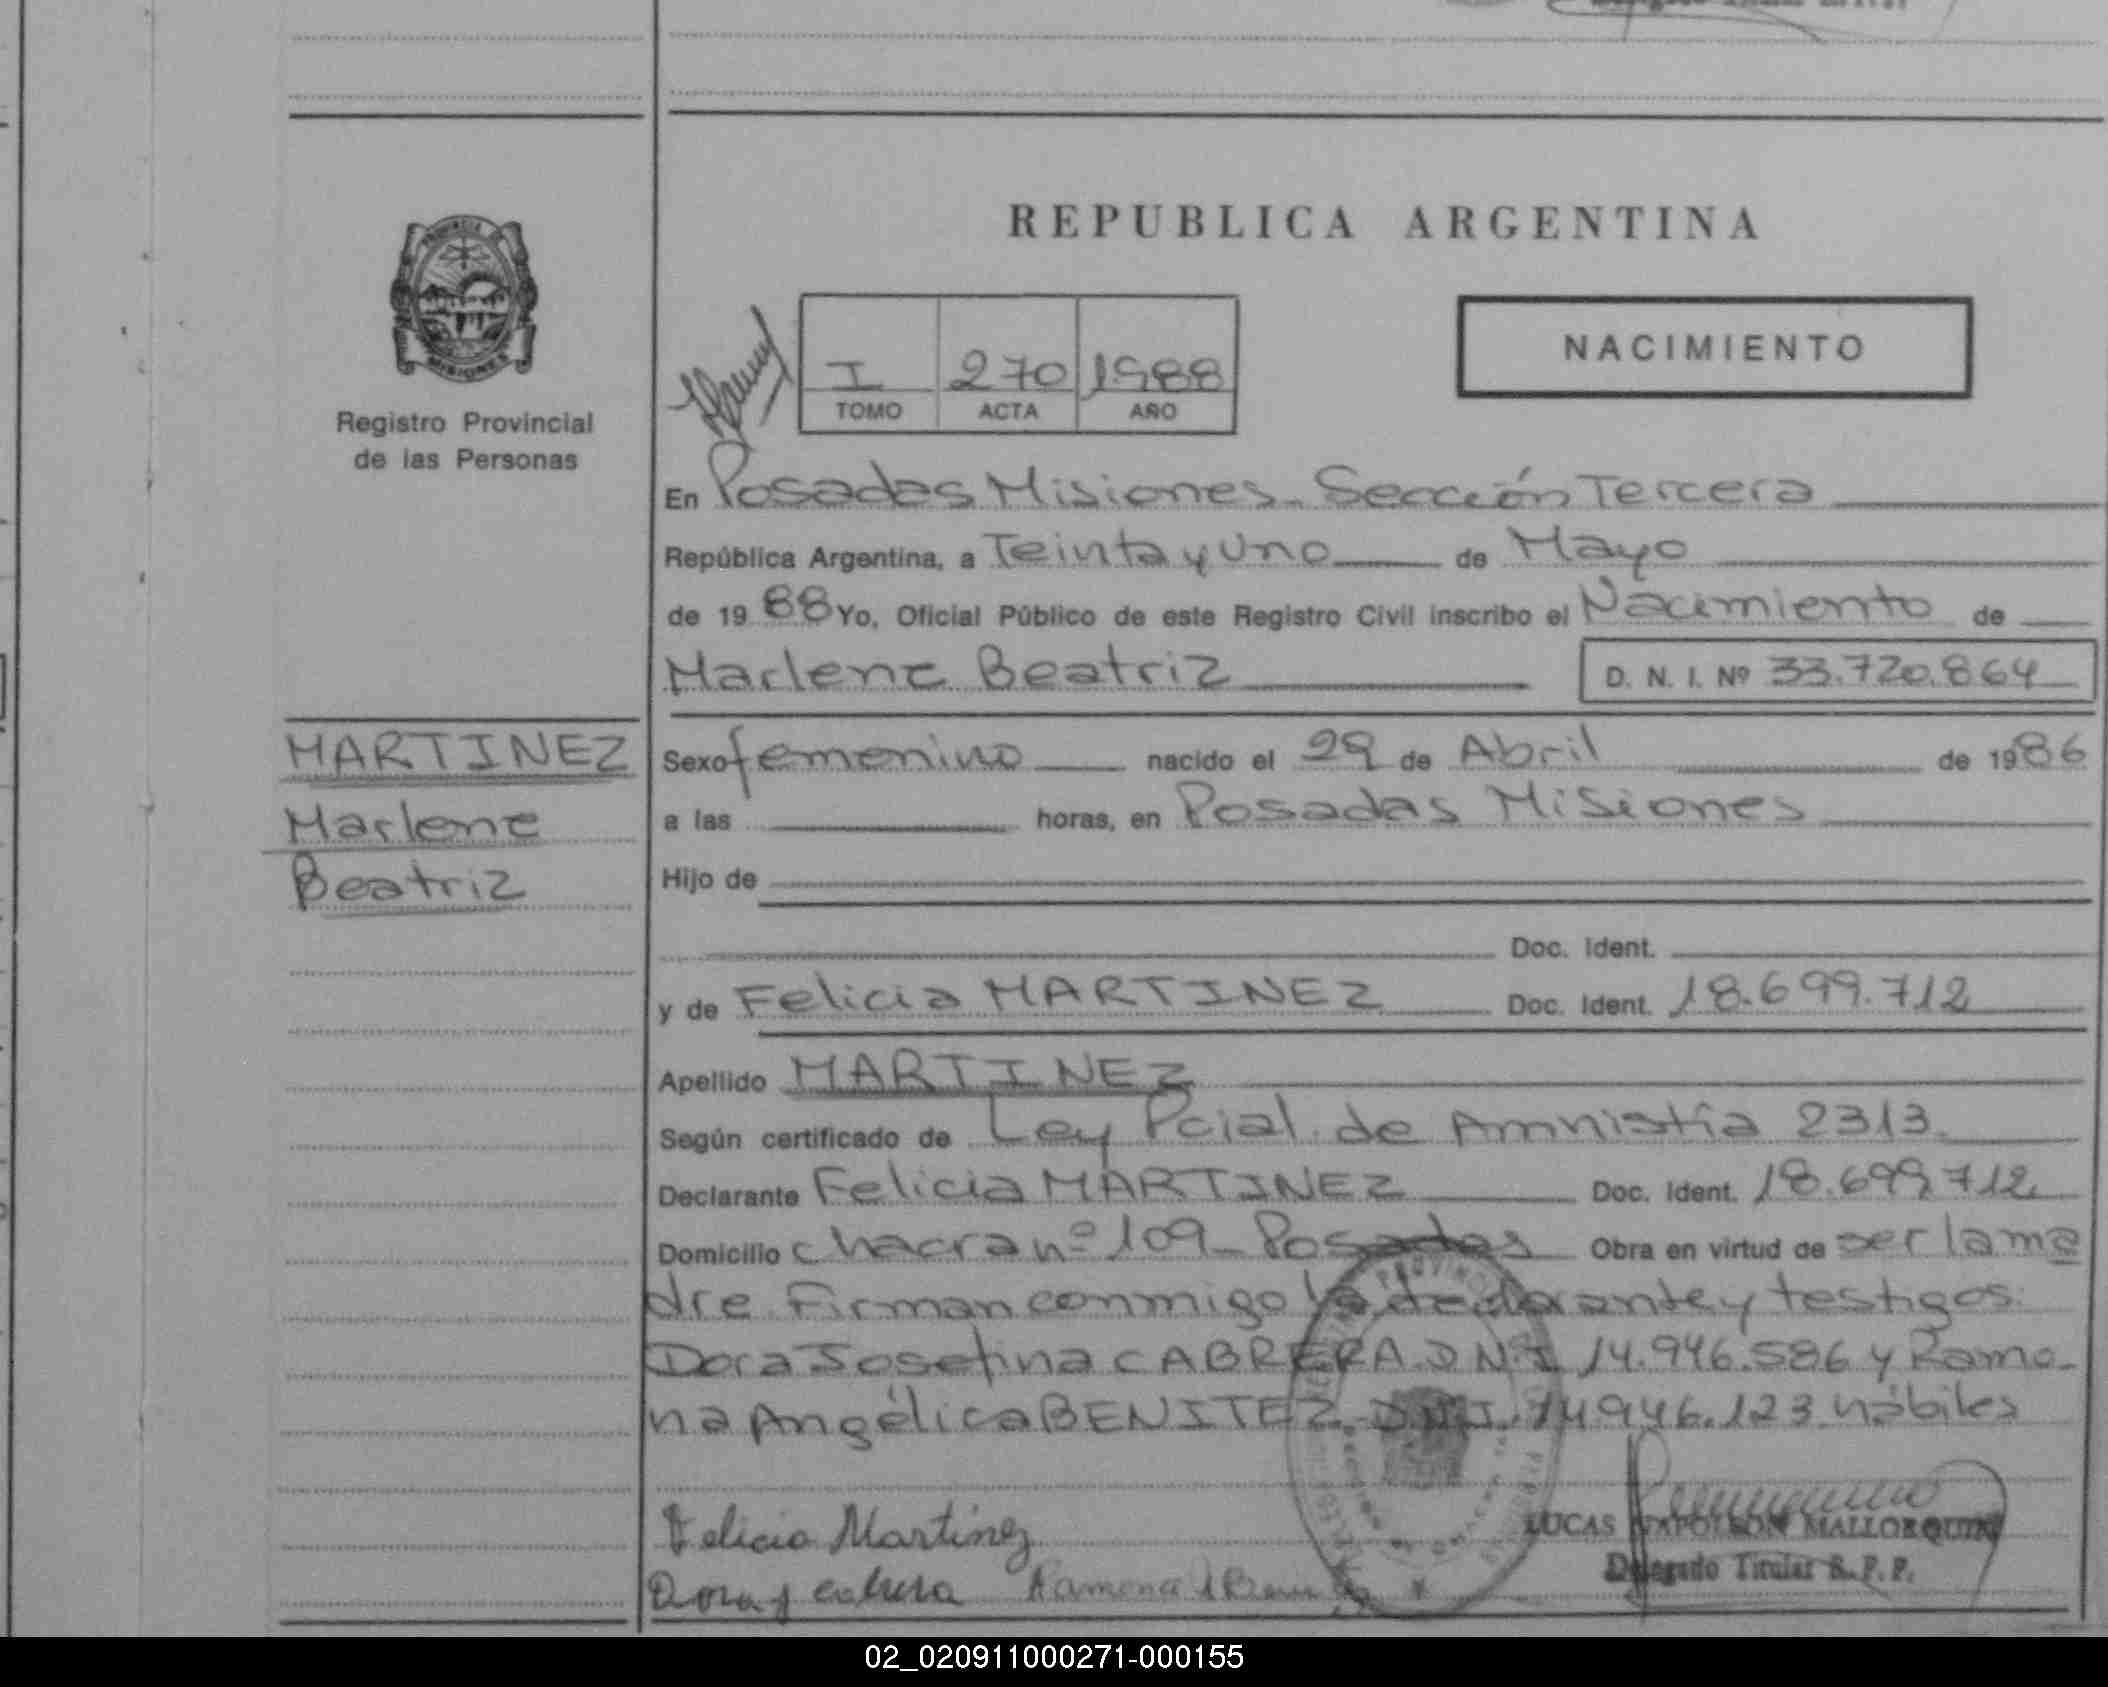 REPUBLICA ARGENTINA
NACIMIENTO
I 270 1988
TOMO ACTA AÑO
PROVINCIA DE
MISIONES
Registro Provincial
de las Personas
En Posadas Misiones. Sección Tercera
República Argentina, a Teinta y Uno de Mayo
de 19 88 Yo, Oficial Público de este Registro Civil inscribo el Nacimiento de
Marlene Beatriz D. N. I. Nº 33.720.864
MARTINEZ
Marlene
Beatriz
Sexo femenino nacido el 29 de Abril de 1986
a las horas, en Posadas Misiones
Hijo de
Doc. Ident.
y de Felicia MARTINEZ Doc. Ident. 18.699.712
Apellido MARTINEZ
Según certificado de Ley Pcial. de Amnistía 2313.
Declarante Felicia MARTINEZ Doc. Ident. 18.699.712
Domicilio chacra nº 109 - Posadas Obra en virtud de ser la ma
dre. Firman conmigo la declarante y testigos.
Dora Josefina CABRERA. D.N.I. 14.946.586 y Ramo-
na Angélica BENITEZ. D.N.I. 14.946.123 hábiles
Felicia Martinez
LUCAS NAPOLEON MALLORQUIN
Delegado Titular R.P.P.
Dora J cabrera Ramona A Benitez
02_020911000271-000155